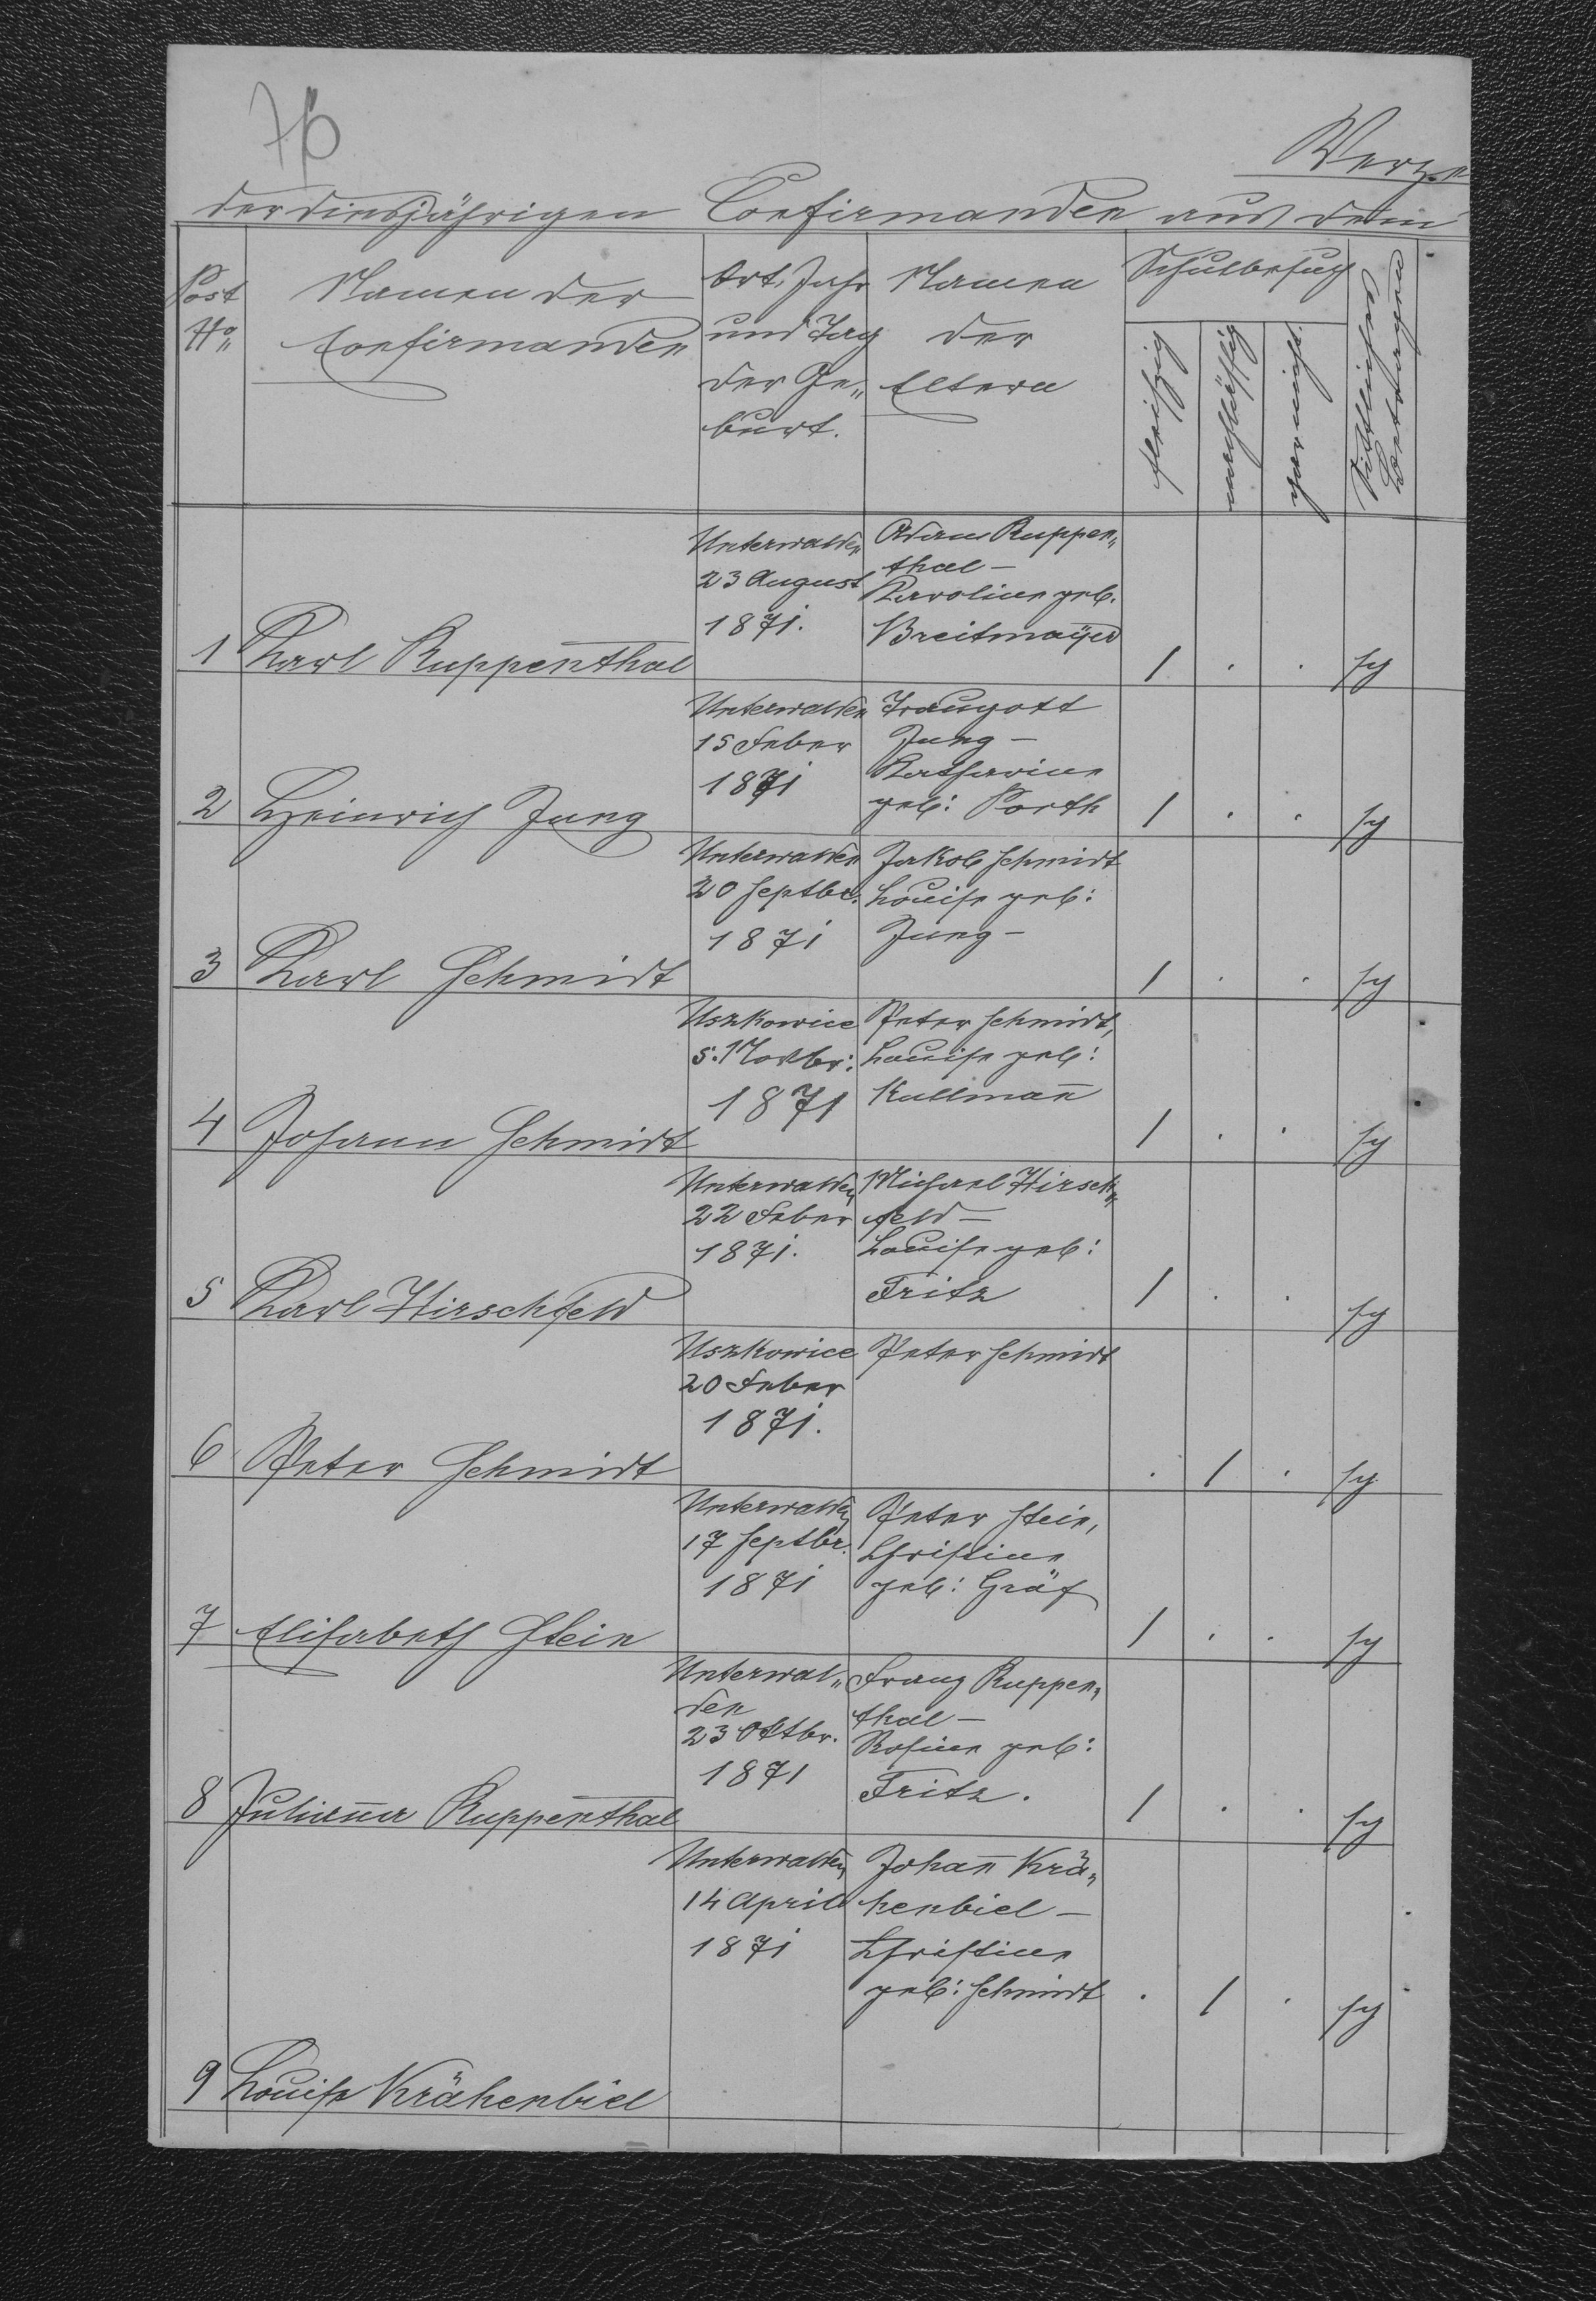 76
Verze
der diesjährigen Confirmanden aus dem
Post
No
Namen der
Confirmanden
Ort, Jahr
und Tag
der Ge„
burt.
Namen
der
Eltern
Schulbesuch
fleißig
nachläßig
gar nicht.
Sittliches
Betragen
1 Karl Ruppenthal
Unterwalden
23 August
1871.
Adam Ruppen„
thal –
Karoline geb.
Breitmaÿer
1 . . sg
2 Heinrich Jung
Unterwalden
15 Feber
1871
Traugott
Jung –
Katharine
geb: Porth
1 . . sg
3 Karl Schmidt
Unterwalden
20 Septbr.
1871
Jakob Schmidt
Louise geb:
Jung –
1 . . sg
4 Johann Schmidt
Uszkowice
5. Novbr:
1871
Peter Schmidt,
Louise geb:
Kullman̄
1 . . sg
5 Karl Hirschfeld
Unterwalden
22 Feber
1871.
Michael Hirsch„
feld –
Louise geb:
Fritz
1 . . sg
6 Peter Schmidt
Uszkowice
20 Feber
1871.
Peter Schmidt
. 1 . sg
7 Elisabeth Stein
Unterwalden
17 Septbr.
1871
Peter Stein,
Christine
geb: Gräf
1 . . sg
8 Julian̄a Ruppenthal
Unterwal„
den
23 Oktbr.
1871
Franz Ruppen„
thal –
Rosine geb:
Fritz.
1 . . sg
9 Louise Krähenbiel
Unterwalden
14 April
1871
Johan̄ Krä„
henbiel –
Christine
geb: Schmidt
. 1 . sg